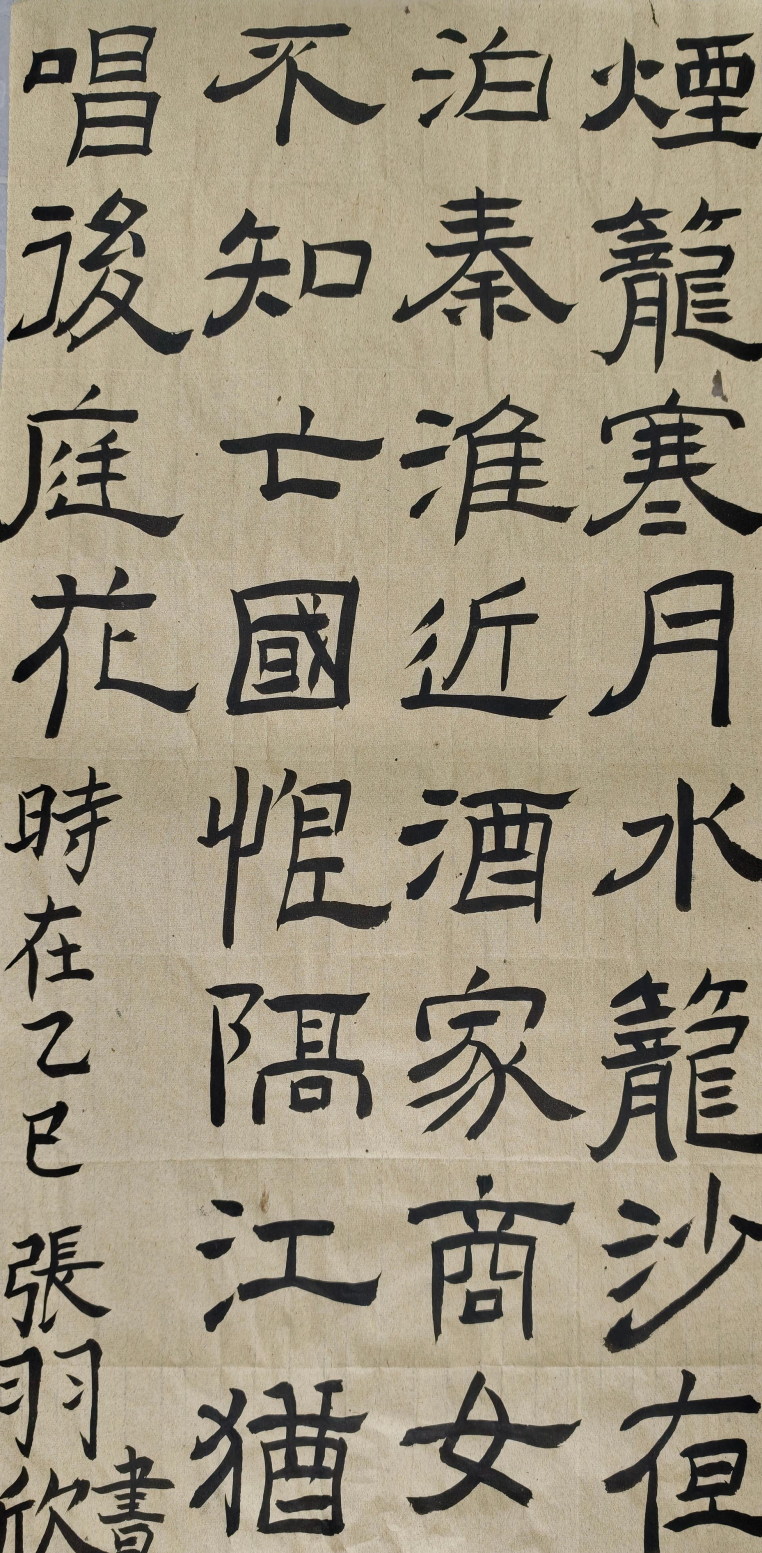 煙籠寒月水籠沙夜
泊秦淮近酒家商女
不知亡國恨隔江猶
唱後庭花
時在乙巳 張羽欣書